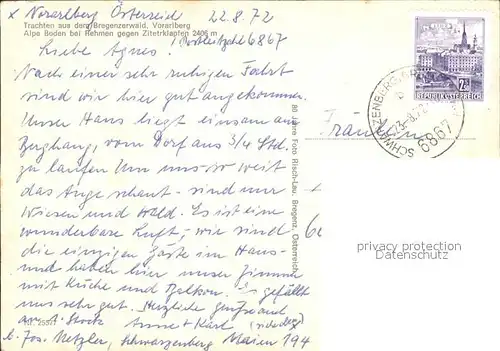 x Vorarlberg Österreich 22.8.72
Trachten aus dem Bregenzerwald, Vorarlberg
Alpe Boden bei Rehmen gegen Zitterklapfen 2406 m
(Postleitzahl 6867
Liebe Agnes!
Nach einer sehr ruhigen Fahrt
sind wir hier gut angekommen.
Unser Haus liegt einsam am
Berghang, vom Dorf aus 3/4 Std.
zu laufen. Um uns so weit
das Auge schaut - sind nur
Wiesen und Wald. Es ist eine
wunderbare Luft, wir sind
die einzigen Gäste im Haus
und haben hier unser Zimmer
mit Küche und Balkon. Es gefällt
uns sehr gut. Herzliche Grüße
Anne + Karl (siehe
b. Jos. Metzler, Schwarzenberg Maien 194
Foto Risch-Lau, Bregenz, Österreich
REPUBLIK ÖSTERREICH
SCHWARZENBERG
23.-8.72
6867
Fräulein
protected by copyright
Datenschutz